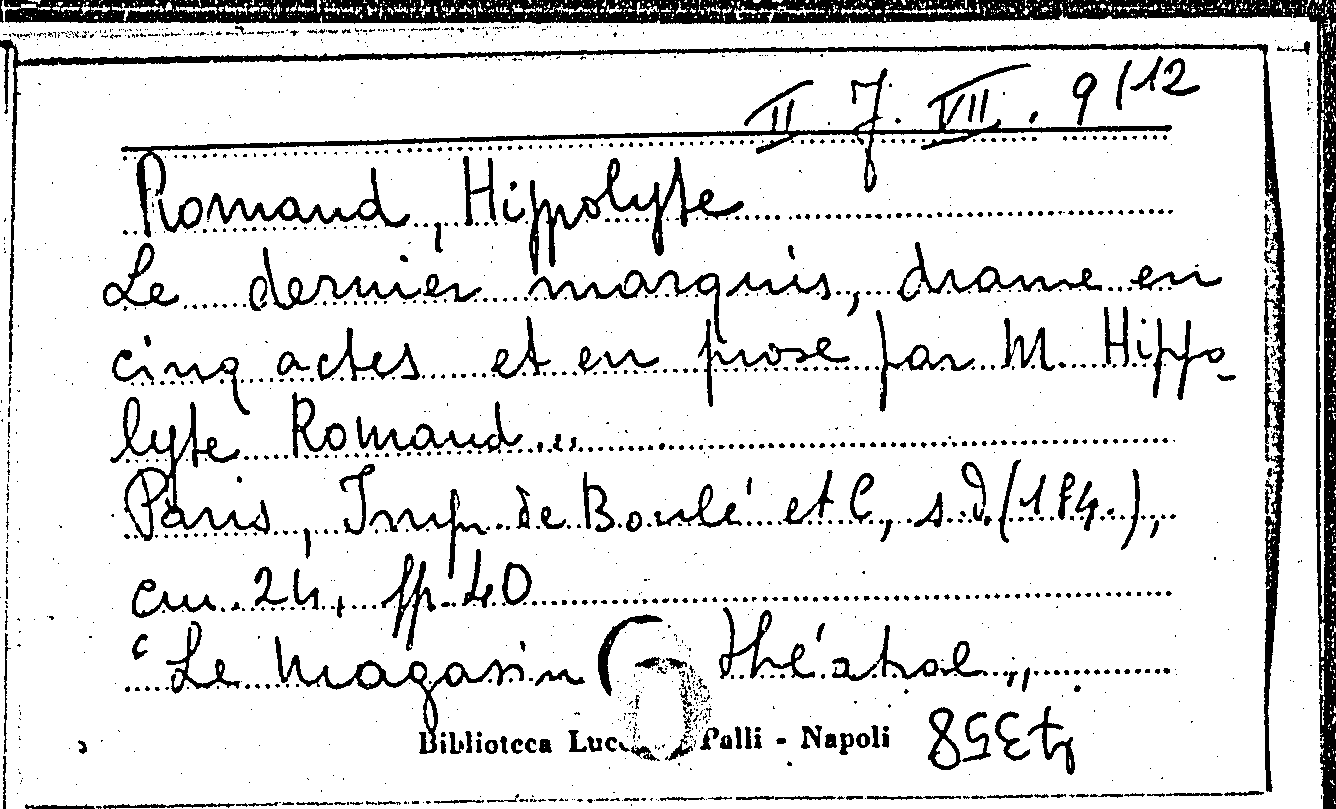 II J. VII. 9/12
Romand, Hippolyte
Le dernier marquis, drame en
cinq actes et en prose par M. Hippo-
lyte Romand...
Paris, Imp. de Boulé et C, s.d. (184.),
cm. 24, pp. 40
"Le Magasin Théâtral„
Biblioteca Palli - Napoli